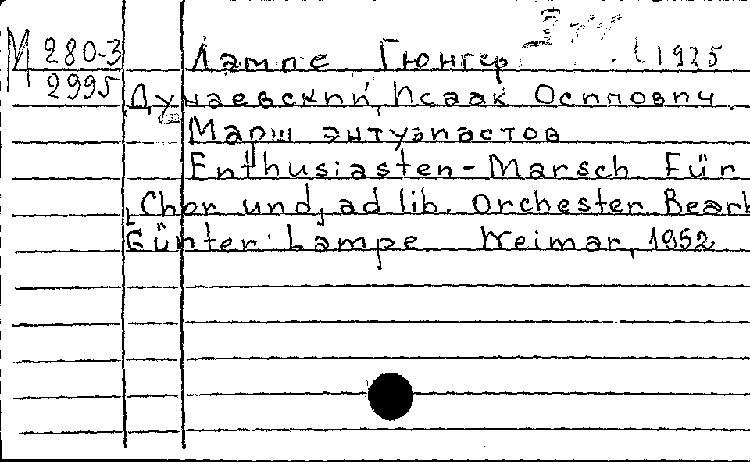 М 280-3
2995
Лампе Гюнтер 1925
Дунаевский, Исаак Осипович.
Марш энтузиастов
Enthusiasten-Marsch Für
Chor und ad lib. Orchester Bearb
Günter Lampe Weimar, 1952